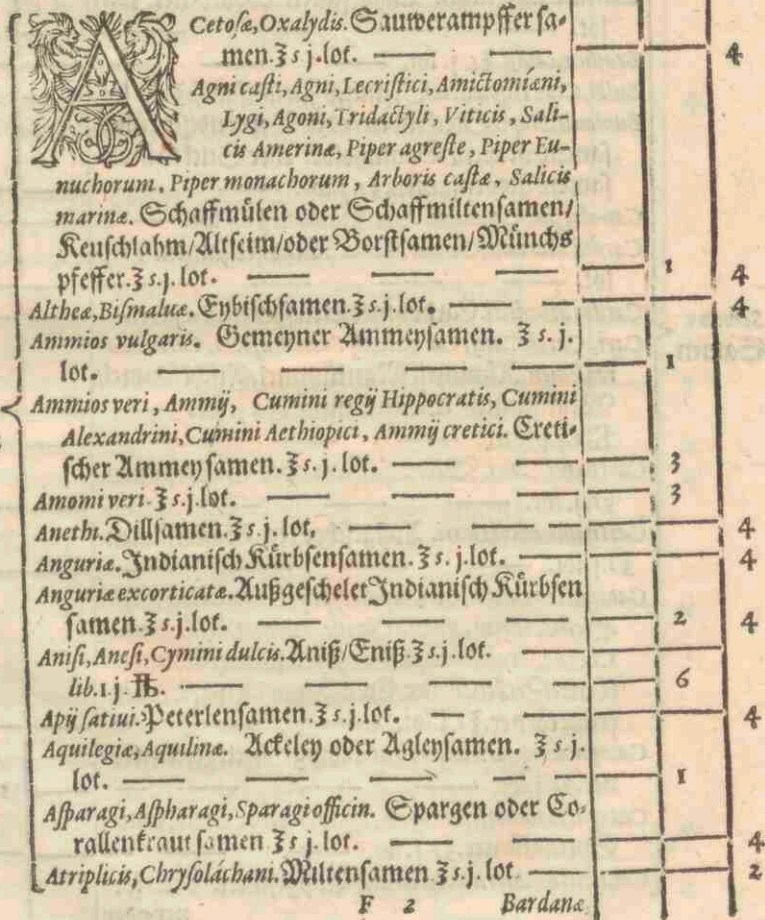 A Cetoſæ, Oxalydis. Sauwerampffer ſa-
men. ʒ s j. lot. — — — 4
Agni caſti, Agni, Lecriſtici, Amictomiæni,
Lygi, Agoni, Tridactyli, Viticis, Sali-
cis Amerinæ, Piper agreſte, Piper Eu-
nuchorum, Piper monachorum, Arboris caſtæ, Salicis
marinæ. Schaffmülen oder Schaffmiltenſamen/
Keuſchlahm/Altſeim/oder Borſtſamen/Münchs
pfeffer. ʒ s. j. lot. — — — 1 4
Altheæ, Biſmaluæ. Eybiſchſamen. ʒ s. j. lot. — — 4
Ammios vulgaris. Gemeyner Ammeyſamen. ʒ s. j.
lot. — — — — 1
Ammios veri, Ammij, Cumini regij Hippocratis, Cumini
Alexandrini, Cumini Aethiopici, Ammij cretici. Creti-
ſcher Ammey ſamen. ʒ s. j. lot. — — 3
Amomi veri. ʒ s. j. lot. — — — 3
Anethi. Dillſamen. ʒ s. j. lot. — — — 4
Anguriæ. Indianiſch Kürbſenſamen. ʒ s. j. lot. — 4
Anguriæ excorticatæ. Außgeſchelet Indianiſch Kürbſen
ſamen. ʒ s. j. lot. — — — 2 4
Aniſi, Aneſi, Cymini dulcis. Aniß/Eniß. ʒ s. j. lot.
lib. 1. j. ℔. — — — — 6
Apij ſatiui. Peterlenſamen. ʒ s. j. lot. — — 4
Aquilegiæ, Aquilinæ. Ackeley oder Agleyſamen. ʒ s j.
lot. — — — — 1
Aſparagi, Aſpharagi, Sparagi officin. Spargen oder Co-
rallenkraut ſamen ʒ s j. lot. — — — 4
Atriplicis, Chryſoláchani. Miltenſamen ʒ s. j. lot — 2
F 2 Bardanæ